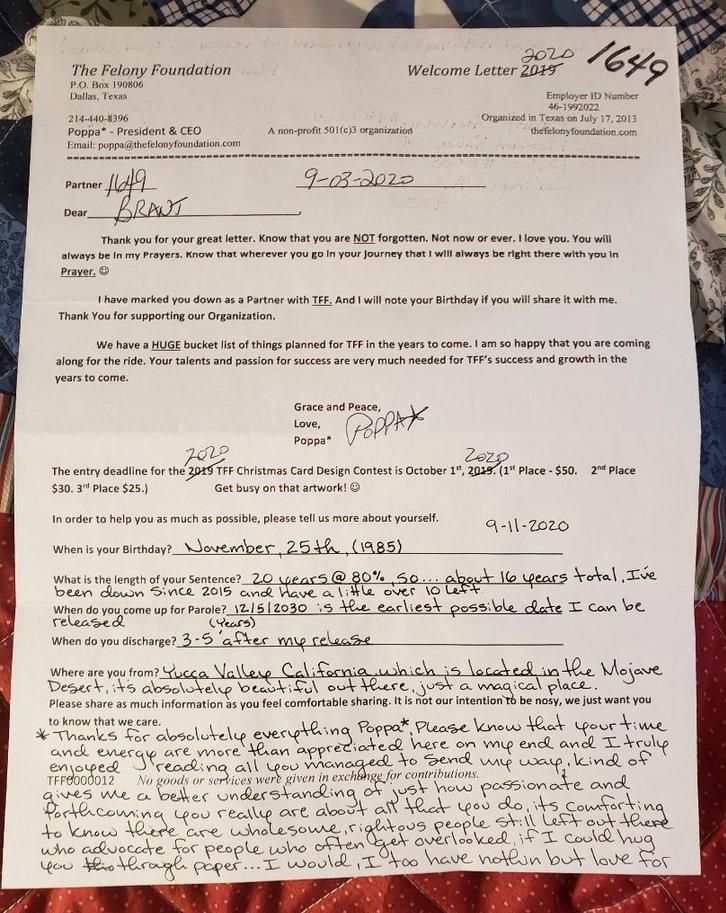 2020
1649
The Felony Foundation Welcome Letter 2019
P.O. Box 190806
Dallas, Texas Employer ID Number
46-1992022
214-440-8396 Organized in Texas on July 17, 2013
Poppa* - President & CEO A non-profit 501(c)3 organization thefelonyfoundation.com
Email: poppa@thefelonyfoundation.com
Partner 1649 9-03-2020
Dear BRANT,
Thank you for your great letter. Know that you are NOT forgotten. Not now or ever. I love you. You will
always be in my Prayers. Know that wherever you go in your Journey that I will always be right there with you in
Prayer. ☺
I have marked you down as a Partner with TFF. And I will note your Birthday if you will share it with me.
Thank You for supporting our Organization.
We have a HUGE bucket list of things planned for TFF in the years to come. I am so happy that you are coming
along for the ride. Your talents and passion for success are very much needed for TFF's success and growth in the
years to come.
Grace and Peace,
Love,
Poppa* POPPA*
2020 2020
The entry deadline for the 2019 TFF Christmas Card Design Contest is October 1st, 2019. (1st Place - $50. 2nd Place
$30. 3rd Place $25.) Get busy on that artwork! ☺
In order to help you as much as possible, please tell us more about yourself.
9-11-2020
When is your Birthday? November, 25th, (1985)
What is the length of your Sentence? 20 years @ 80%, so... about 16 years total, I've
been down since 2015 and have a little over 10 left.
When do you come up for Parole? 12/5/2030 is the earliest possible date I can be
released (Years)
When do you discharge? 3-5 after my release
Where are you from? Yucca Valley California, which is located in the Mojave
Desert, it's absolutely beautiful out there, just a magical place.
Please share as much information as you feel comfortable sharing. It is not our intention to be nosy, we just want you
to know that we care.
* Thanks for absolutely everything Poppa*, Please know that your time
and energy are more than appreciated here on my end and I truly
enjoyed reading all you managed to send my way, kind of
TFF0000012 No goods or services were given in exchange for contributions.
gives me a better understanding of just how passionate and
forthcoming you really are about all that you do, its comforting
to know there are wholesome, rightous people still left out there
who advocate for people who often get overlooked, if I could hug
you through paper... I would, I too have nothin but love for